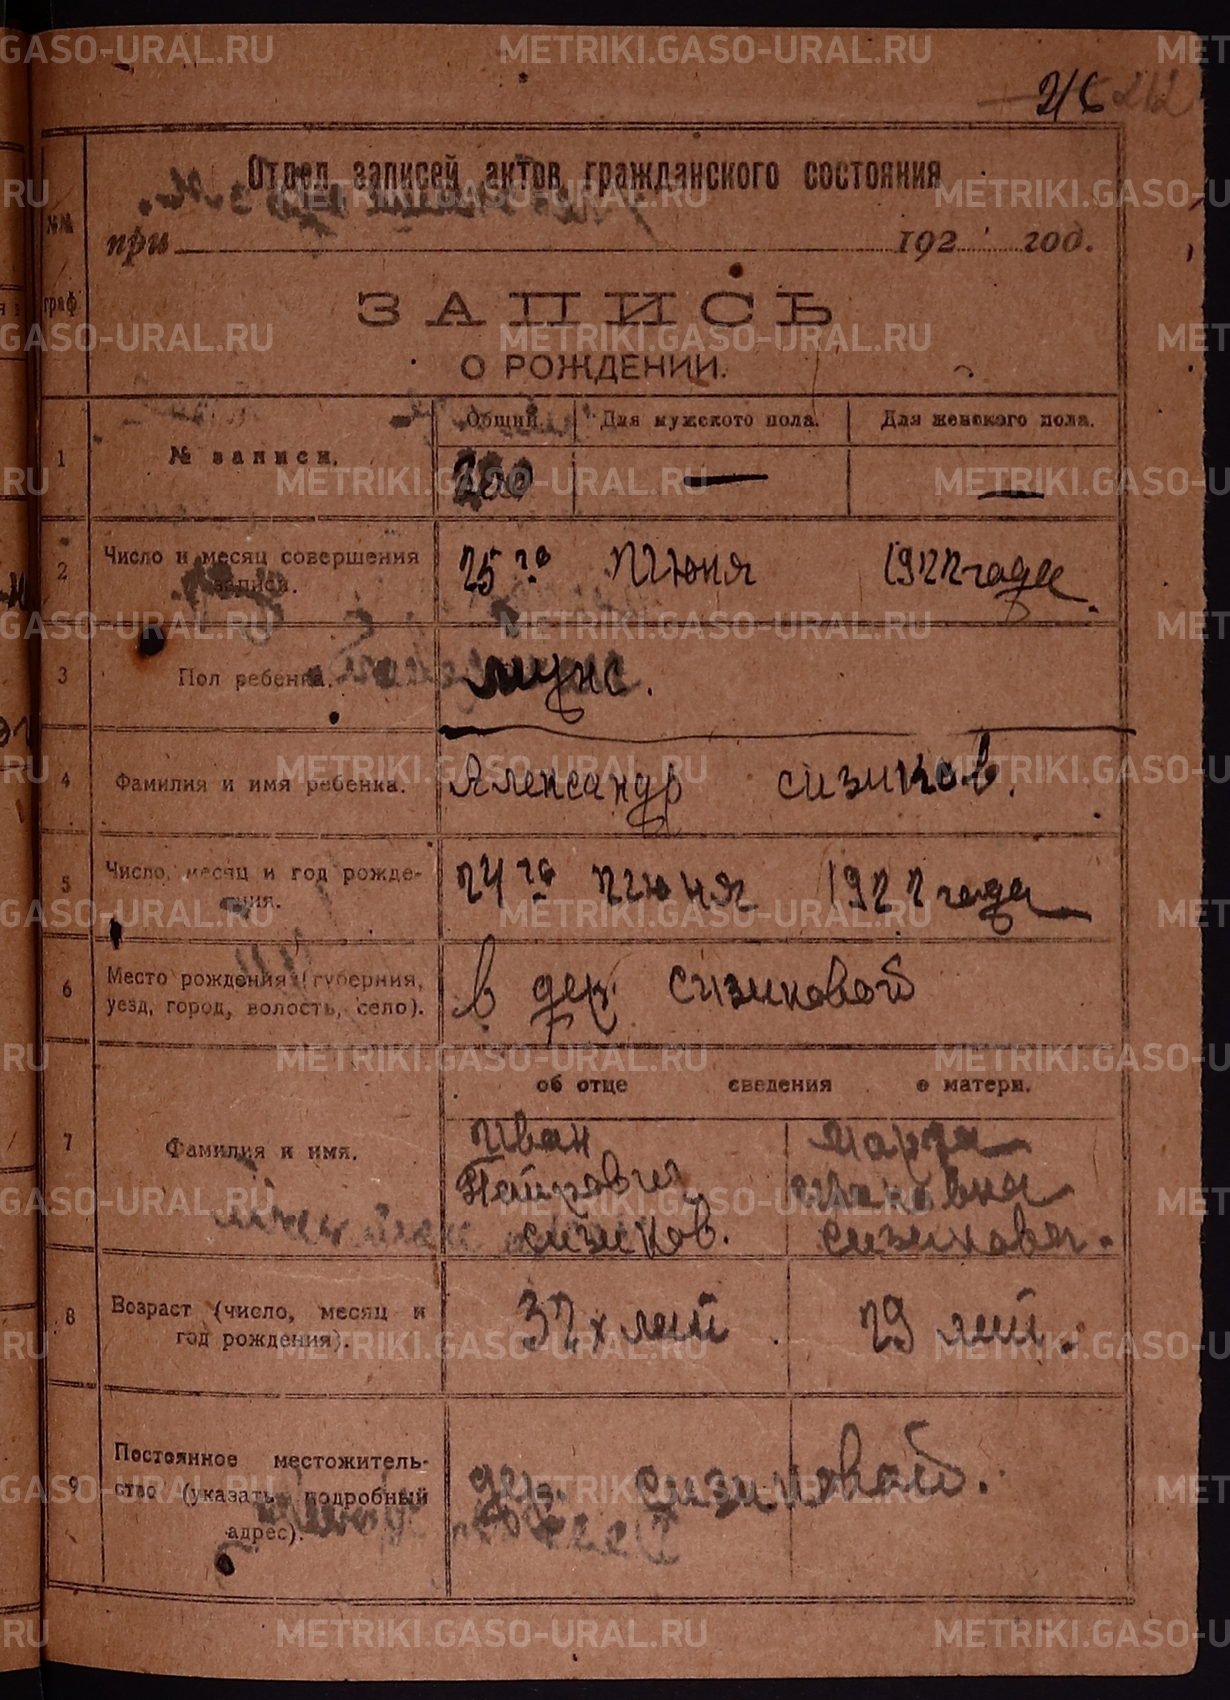 216 212
Отдел записей актов гражданского состояния
№№
при 192 год.
граф
ЗАПИСЬ
О РОЖДЕНИИ.
Общий. Для мужского пола. Для женского пола.
1 № записи. 200 — —
2 Число и месяц совершения
записи.
25 го июня 1922 года.
3 Пол ребенка. мужс.
4 Фамилия и имя ребенка. Александр сизиков.
5 Число, месяц и год рожде-
ния.
24 го июня 1922 года
6 Место рождения (губерния,
уезд, город, волость, село).
в дер. сизиковой
об отце сведения о матери.
7 Фамилия и имя.
Иван
Петрович
сизиков.
марфа
сизикова.
8 Возраст (число, месяц и
год рождения).
32 х лет 29 лет.
9 Постоянное местожитель-
ство (указать подробный
адрес).
дер. сизиковой.
METRIKI.GASO-URAL.RU